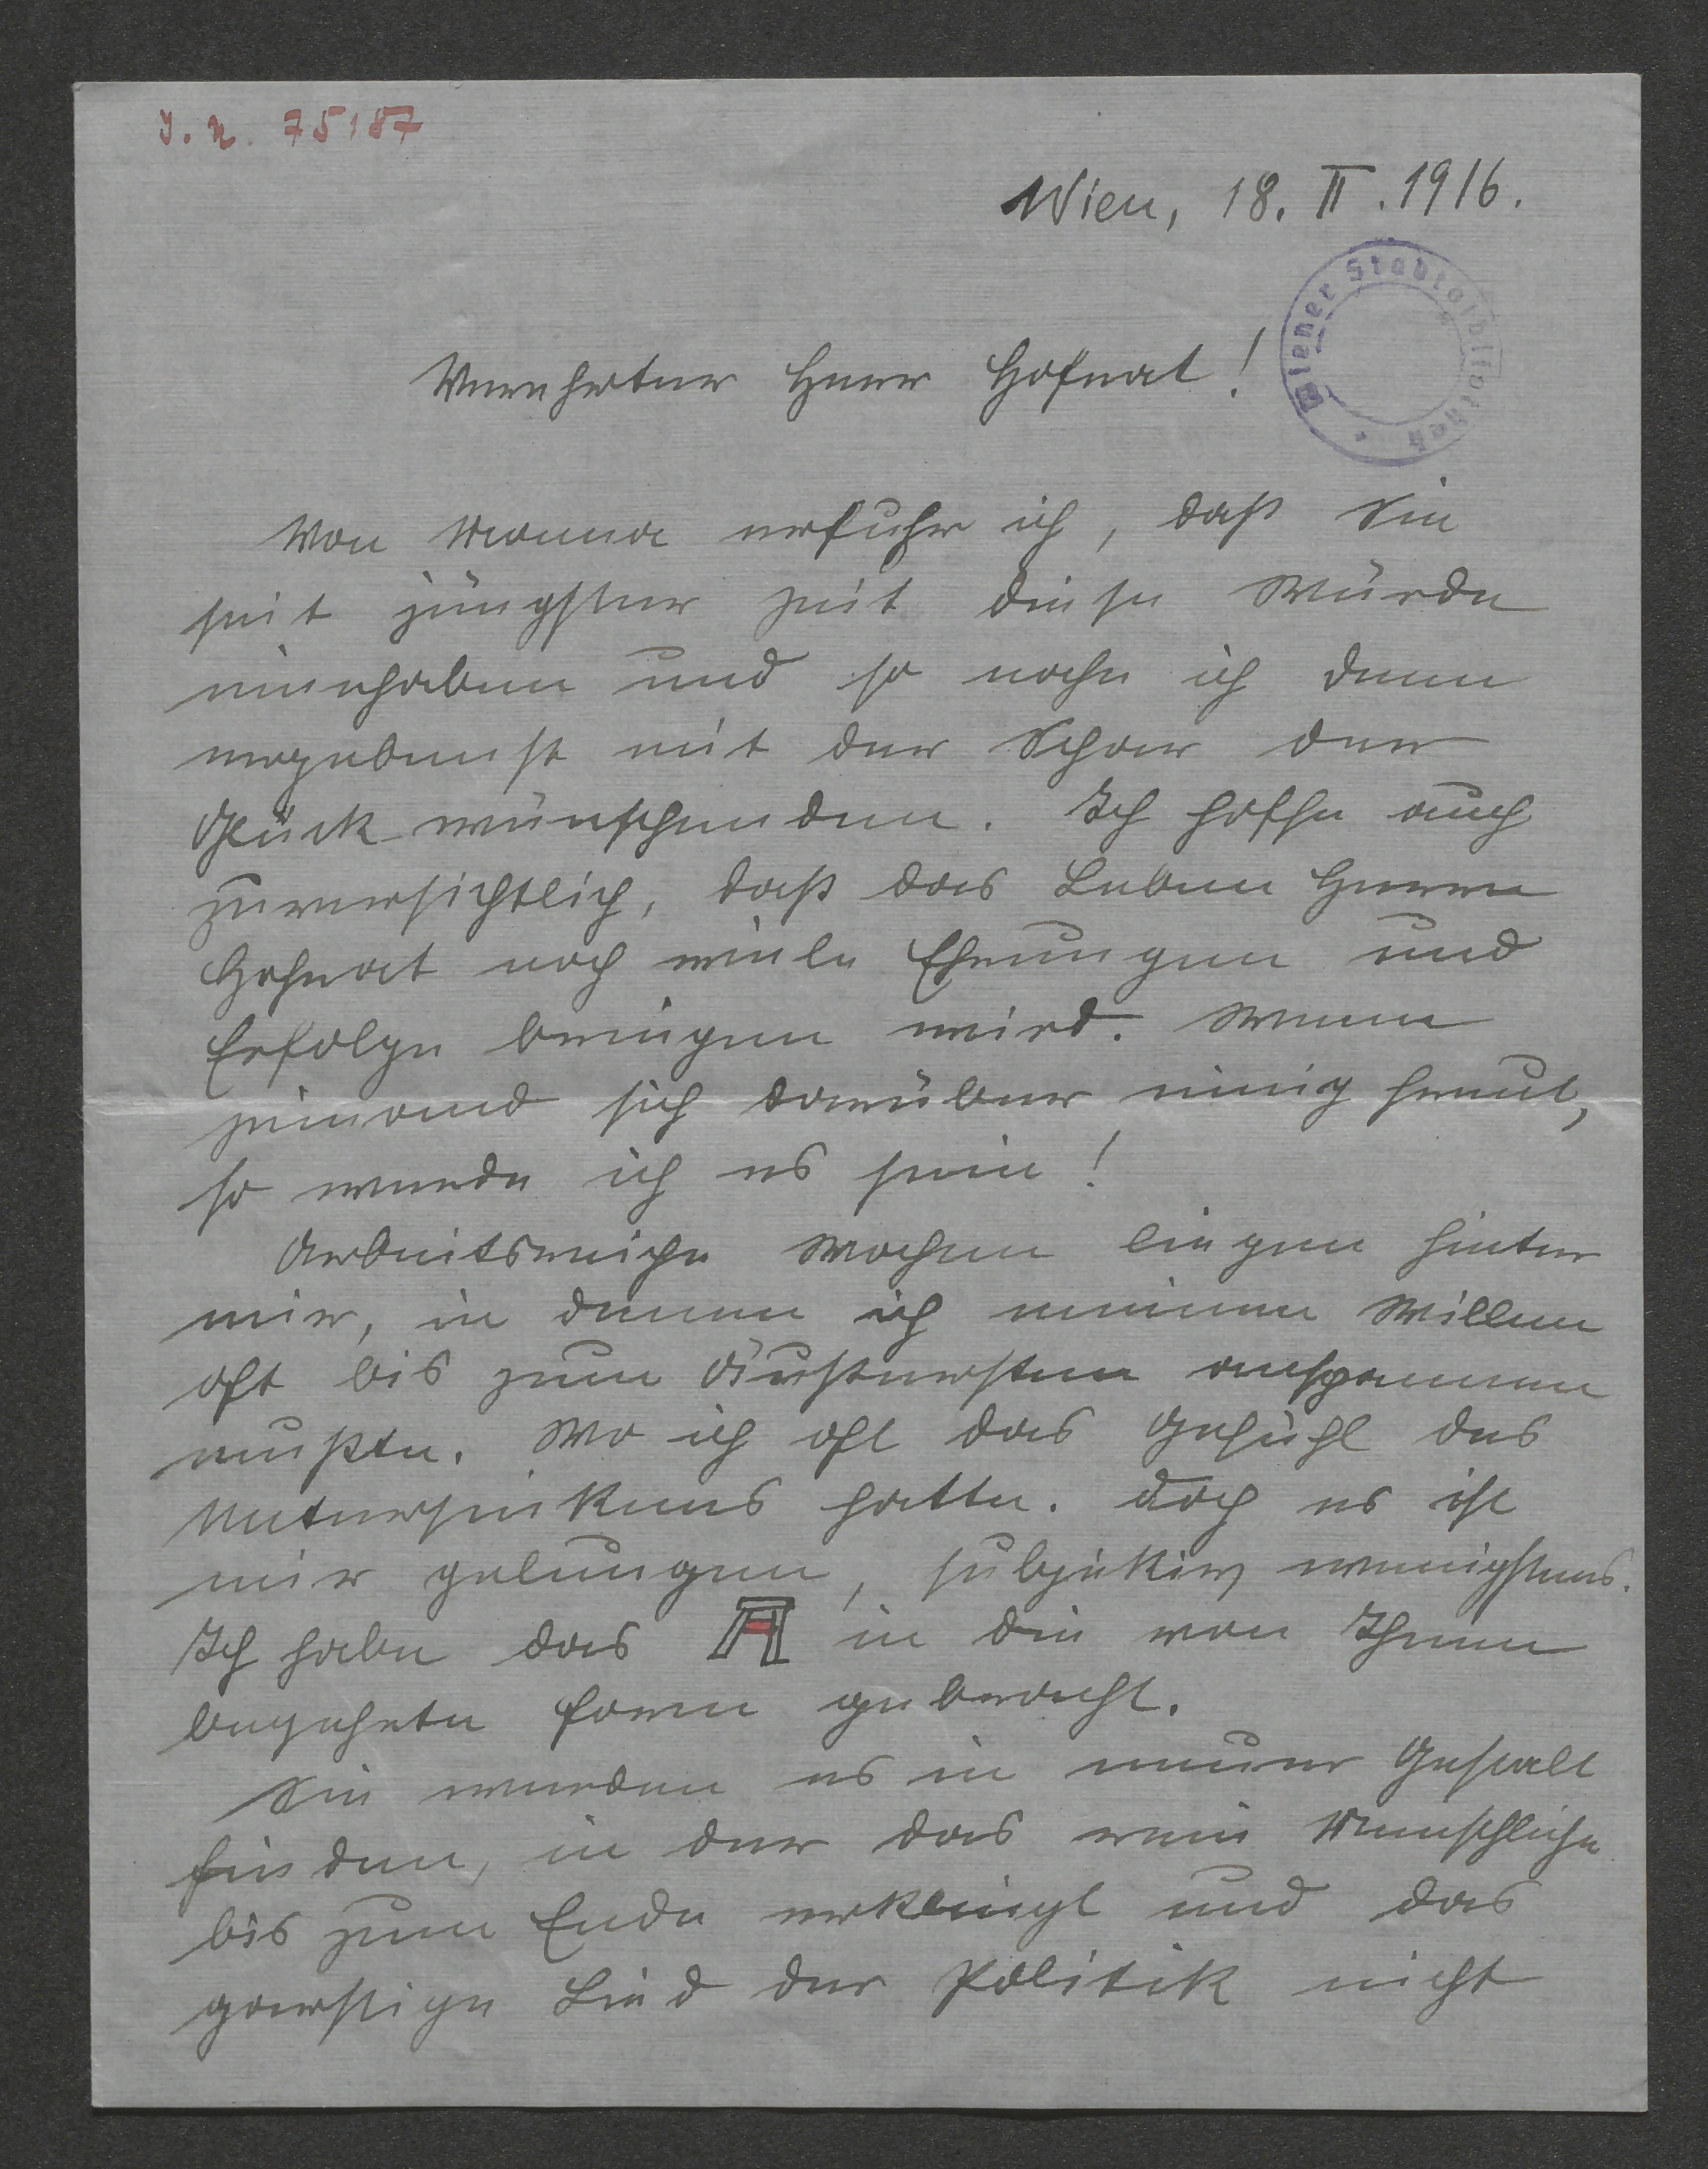 J. N. 75187
Wien, 18. II. 1916.
Wiener Stadtbibliothek
Verehrter Herr Hofrat!
Von Mama erfuhr ich, daß Sie
seit jüngster Zeit diese Würde
innehaben und so nahe ich denn
ergebenst mit der Schar der
Glückwünschenden. Ich hoffe auch
zuversichtlich, daß das Leben Herrn
Hofrat noch viele Ehrungen und
Erfolge bringen wird. Wenn
jemand sich darüber innig freut,
so werde ich es sein!
Arbeitsreiche Wochen liegen hinter
mir, in denen ich meinen Willen
oft bis zum Äußersten anspannen
mußte. Wo ich oft das Gefühl des
Untersinkens hatte. Doch es ist
mir gelungen, subjektiv wenigstens.
Ich habe das A in die von Ihnen
begehrte Form gebracht.
Sie werden es in neuer Gestalt
finden, in der das rein Menschliche
bis zum Ende erklingt und das
garstige Lied der Politik nicht